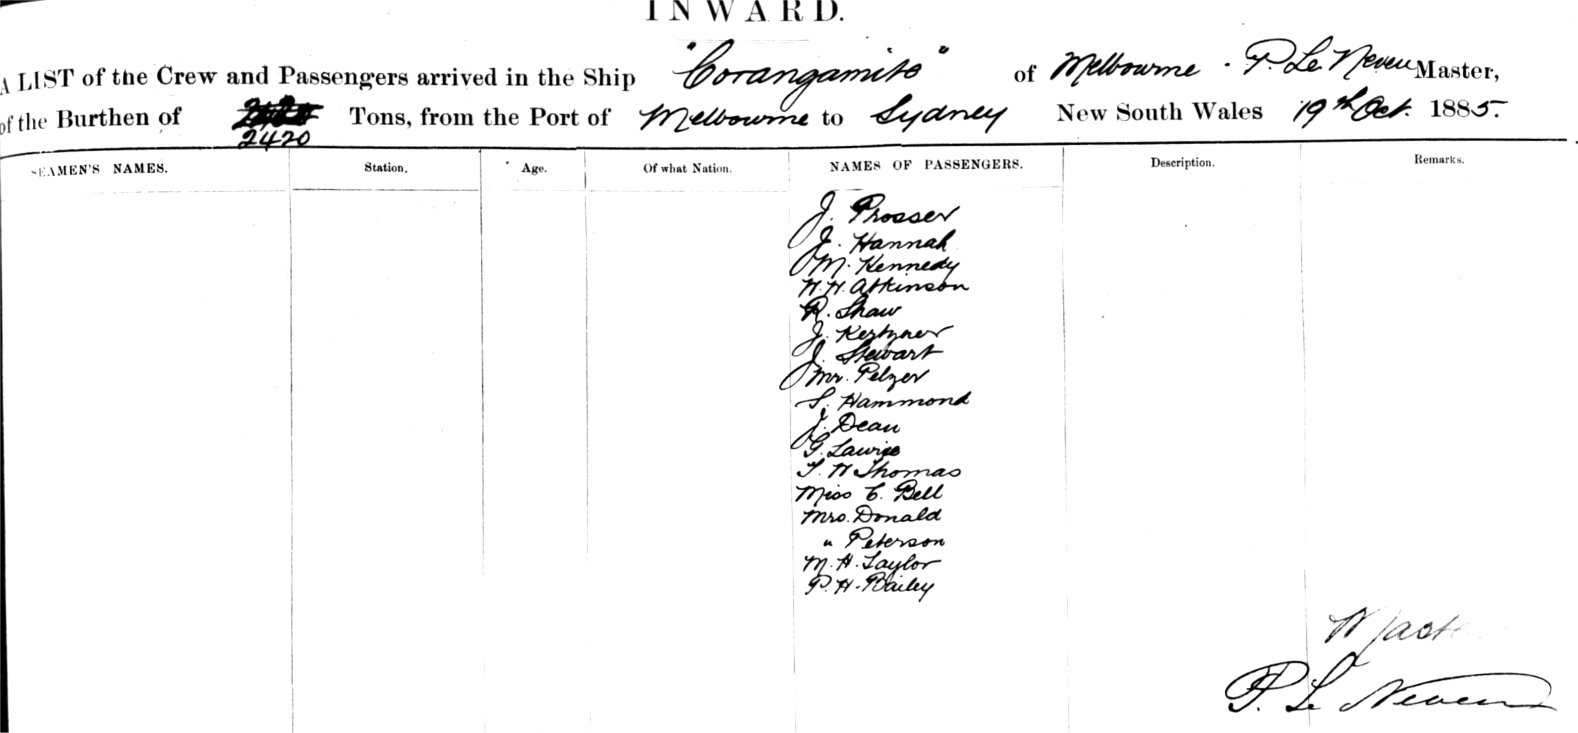 INWARD.
A LIST of the Crew and Passengers arrived in the Ship "Corangamite" of Melbourne - P. Le Neveu Master,
of the Burthen of 2420 Tons, from the Port of Melbourne to Sydney New South Wales 19th Oct. 1885.
SEAMEN'S NAMES. Station. Age. Of what Nation. NAMES OF PASSENGERS. Description. Remarks.
J. Prosser
J. Hannah
M. Kennedy
W. H. Atkinson
R. Shaw
J. Kertzner
J. Stewart
Mr. Pelzer
S. Hammond
J. Dean
G. Lawrie
T. W Thomas
Miss C. Bell
Mrs. Donald
" Peterson
M. H. Taylor
P. H. Bailey
P. Le Neveu